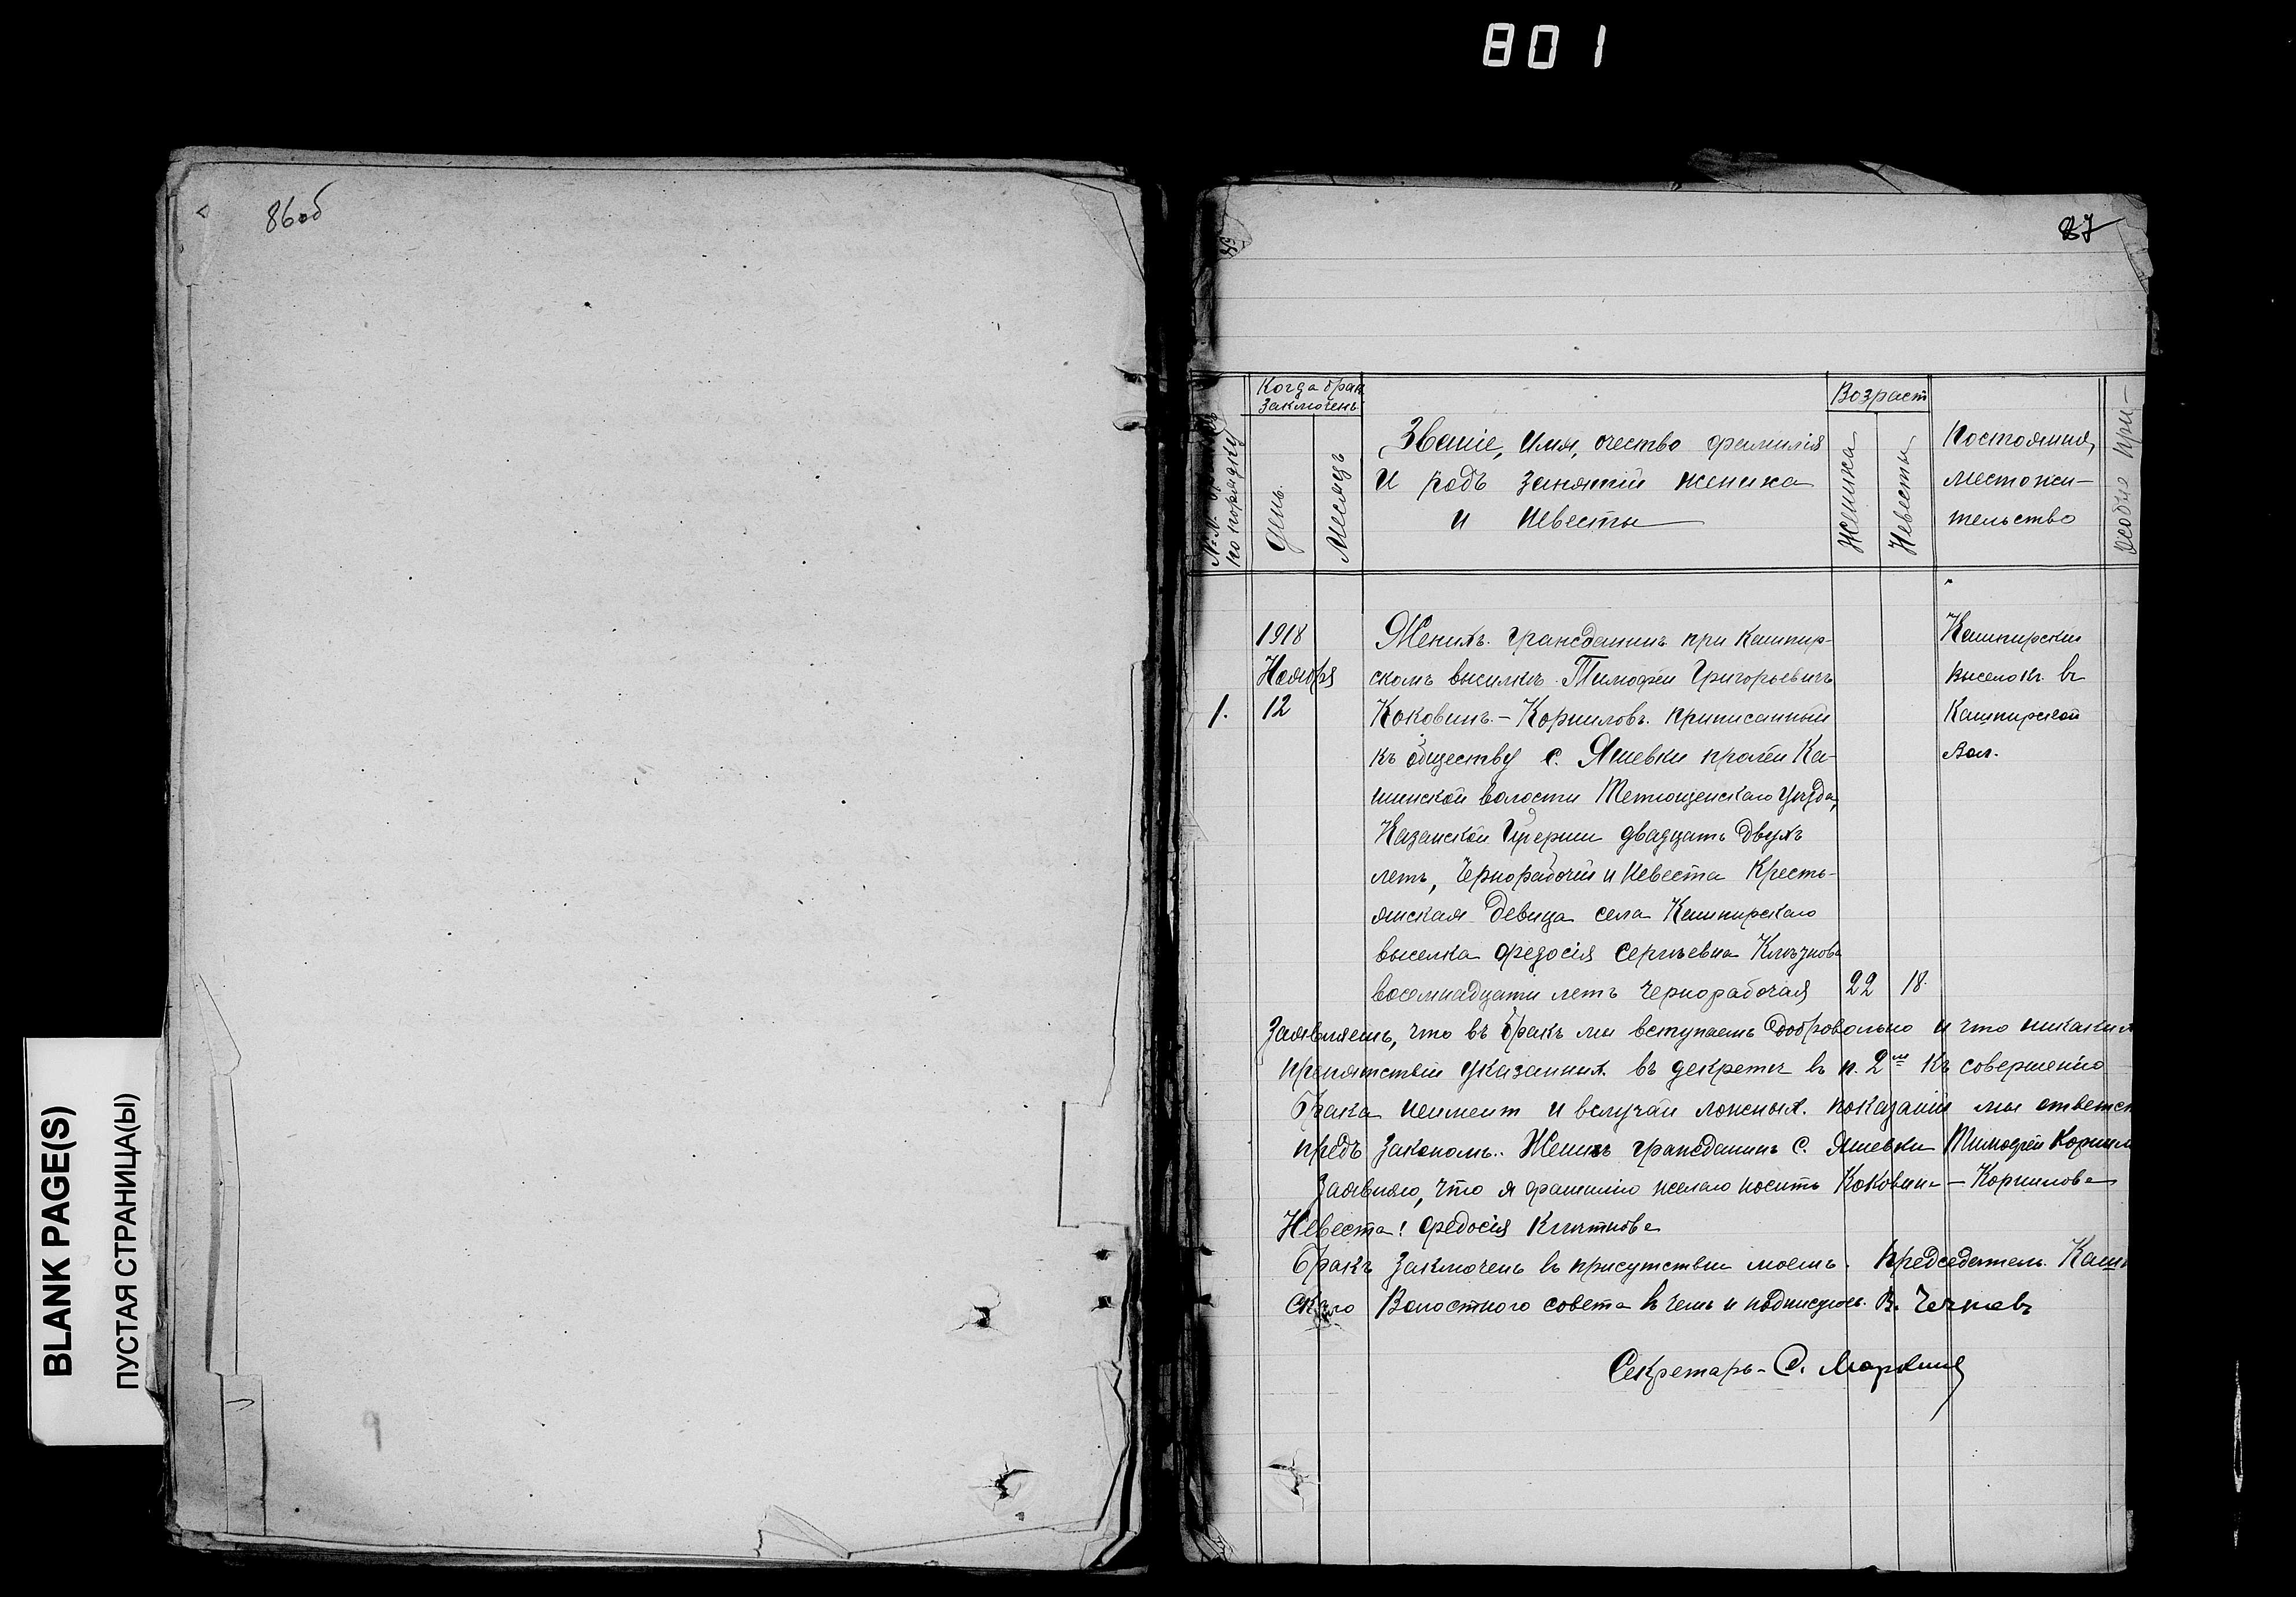 801
86об
87
BLANK PAGE(S)
ПУСТАЯ СТРАНИЦА(Ы)
№№
по порядку
Когда брак
заключенъ
День.
Месяцъ
Званіе, имя, очество фамилія
и родъ занятій жениха
и невесты
Возраст
Жениха
Невесты
Постоянн,
местожи-
тельство
Особые при-
1918
Ноября
1. 12
Женихъ. гражданинъ при Кашпир-
скомъ выселкъ. Тимофей Григорьевичъ
Коковинъ.-Корниловъ. приписанный
къ обществу с. Яшевки
шинской волости Тетюшенскаго уѣзда,
Казанской Губерніи двадцать двухъ
летъ, Чернорабочій и Невеста Кресть-
янская девица села Кашпирскаго
выселка Федосія Сергѣевна
восемнадцати летъ чернорабочая 22 18.
Кашпирскій
выселокъ. въ
Кашпирской
Вол.
Заявляемъ, что въ бракъ мы вступаемъ добровольно и что никаких
препятствій указанных. въ декретѣ в п. 2м къ совершенію
брака неимеит и вслучаи ложных. показаній мы ответст
предъ закономъ.. Женихъ гражданинъ С. Яшевки Тимофей Корнил
Заявляю, что я фамилію желаю носить Коковина-Корнилова
Невеста! Федосія
Бракъ заключенъ въ присутствіи моемъ. Председатель. Кашп
скаго Волостного совета в чемъ и подписуюсь. В.
Секретарь- С.